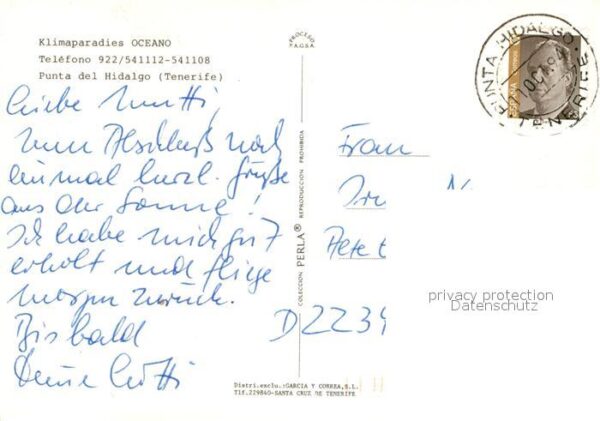 Klimaparadies OCEANO
Teléfono 922/541112-541108
Punta del Hidalgo (Tenerife)
Liebe Mutti,
zum Abschluß noch
einmal herzl. Grüße
aus der Sonne!
Ich habe mich gut
erholt und fliege
morgen zurück.
Bis bald
Deine
PROCESO
F.A.G.S.A.
COLECCION PERLA® REPRODUCCION PROHIBIDA
Distri.exclu.:GARCIA Y CORREA,S.L.
Tlf.229840-SANTA CRUZ DE TENERIFE
PUNTA HIDALGO
TENERIFE
ESPAÑA
Frau
D2234
privacy protection
Datenschutz